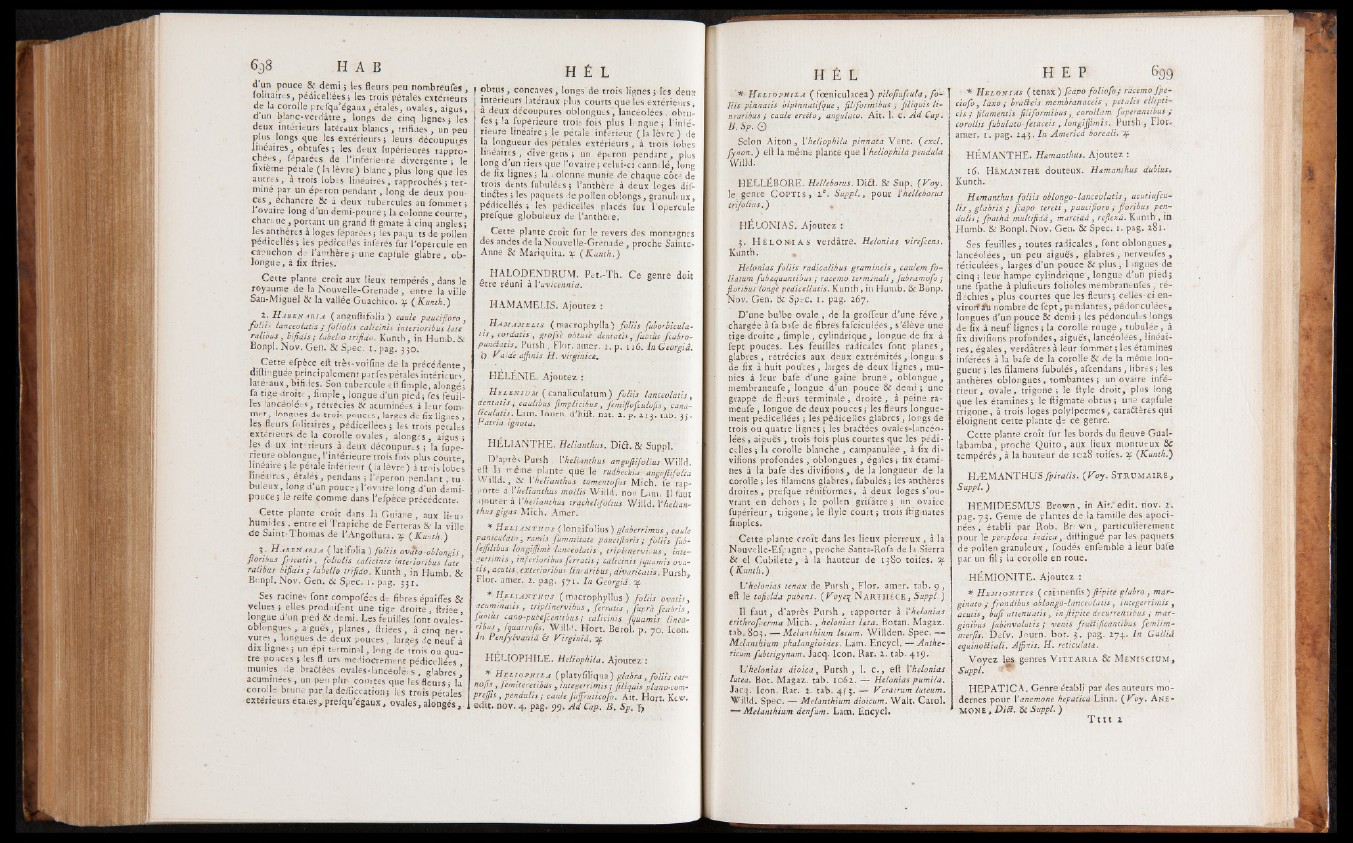 698 H A B
d'un pouce & demi ; les fleurs peu nombreuses,
solitaires, pédicellées ; les trois pétales extérieurs
de la corolle presqu'égaux, étalés, ovales, aigus,
d'un blanc-verdâtre, longs de cinq lignes ; les
deux intérieurs latéraux blancs, trifides, un peu
plus longs que les extérieurs ; leurs découpures
linéaires, obtuses ; les deux supérieures rappro-
chées, séparées de l'inférieure divergente ; le
sixième pétale (la lèvre) blanc, plus long que les
autres, à trois lobes linéaires, rapprochés ; ter-
miné par un éperon pendant, long de deux pou-
ces, échancré & à deux tubercules au sommet ;
l'ovaire long d'un demi-pouce ; la colonne courte,
charnue, portant un grand stigmate à cinq angles ;
les anthères à loges séparées ; les paquets de pollen
pédicellés ; les pédicelles insérés sur l'opercule en
capuchon de l'anthère ; une capsule glabre, ob-
longue, à six stries.
Cette plante croît aux lieux tempérés, dans le
royaume de la Nouvelle-Grenade, entre la ville
Sau-Miguel & la vallée Guachico. ♃ (Kunth.)
2. HABENARIA (angustifolia) caule paucifloro,
foliis lanceolatis ; foliolis calicinis interioribus late-
ralibus, bifidis ; labello trifido. Kunth, in Humb. &
Bonpl. Nov. Gen. & Spec. 1. pag. 330.
Cette espèce est très-voisine de la précédente,
distinguée principalement par ses pétales intérieurs,
latéraux, bifides. Son tubercule est simple, alongé ;
sa tige droite, simple, longue d'un pied ; ses feuil-
les lancéolées, rétrécies & acuminées à leur som-
met, longues de trois pouces, larges de six lignes ;
les fleurs solitaires, pédicellées ; les trois pétales
extérieurs de la corolle ovales, alongés, aigus ;
les deux intérieurs à deux découpures ; la supé-
rieure oblongue, l'intérieure trois fois plus courte,
linéaire ; le pétale inférieur (la lèvre) à trois lobes
linéaires, étalés, pendans ; l'éperon pendant, tu-
buleux, long d'un pouce ; l'ovaire long d'un demi-
pouce ; le reste comme dans l'espèce précédente.
Cette plante croît dans la Guiane, aux lieux
humides, entre el Trapiche de Ferreras & la ville
de Saint-Thomas de l'Angostura. ♃ (Kunth.)
3. HABENARIA (latifolia) foliis ovato-oblongis,
floribus spicatis, foliolis calicinis interioribus late-
ralibus bifidis ; labello trifido. Kunth, in Humb. &
Bonpl. Nov. Gen. & Spec. 1. pag. 331.
Ses racines sont composées de fibres épaisses &
velues ; elles produisent une tige droite, striée,
longue d'un pied & demi. Les feuilles sont ovales-
oblongues, aiguës, planes, striées, à cinq ner-
vures, longues de deux pouces, larges de neuf à
dix lignes ; un épi terminal, long de trois ou qua-
tre pouces ; les fleurs médiocrement pédicellées,
munies de bractées ovales-lancéolées, glabres,
acuminées, un peu plus courtes que les fleurs ; la
corolle brune par la dessiccation ; les trois pétales
extérieurs étalés, presqu'égaux, ovales, alongés,
H É L
obtus, concaves, longs de trois lignes ; les deux
intérieurs latéraux plus courts que les extérieurs,
à deux découpures oblongues, lancéolées, obtu-
ses ; la supérieure trois fois plus longue ; l'infé-
rieure linéaire ; le pétale inférieur (la lèvre) de
la longueur des pétales extérieurs, à trois lobes
linéaires, divergens ; un éperon pendant, plus
long d'un tiers que l'ovaire ; celui-ci cannelé, long
de six lignes ; la colonne munie de chaque côté de
trois dents subulées ; l'anthère à deux loges dis-
tinctes ; les paquets de pollen oblongs, granuleux,
pédicellés ; les pédicelles placés sur l'opercule
presque globuleux de l'anthère.
Cette plante croît sur le revers des montagnes
des andes de la Nouvelle-Grenade, proche Sainte-
Anne & Mariquita. ♃ (Kunth.)
HALODENDRUM. Pet.-Th. Ce genre doit
être réuni à l'avicennia.
HAMAMELIS. Ajoutez :
HAMAMELIS (macrophylla) foliis suborbicula-
tis, cordatis, grossè obtusè dentatis, subtùs scabro-
punctatis. Pursh, Flor. amer. 1. p. 116. In Georgiâ.
♄ Valdè affinis H. virginicæ.
HÉLÉNIE. Ajoutez :
HELENIUM (canaliculatum) foliis lanceolatis,
dentatis, caulibus simplicibus, semiflosculosis, cana-
liculatis. Lam. Journ. d'hist. nat. 2. p. 213. tab. 35.
Patria ignota.
HÉLIANTHE. Helianthus. Dict. & Suppl.
D'après Pursh, l'helianthus angustifolius Willd.
est la même plante que le rudbeckia angustifolia
Willd., & l'helianthus tomentosus Mich. se rap-
porte à l'helianthus mollis Willd. non Lam. Il faut
ajouter à l'helianthus trachelifolius Willd. l'helian-
thus gigas Mich. Amer.
* HELIANTHUS (longifolius) glaberrimus, caule
paniculato, ramis summitate paucifloris ; foliis sub-
sessilibus longissimè lanceolatis, triplinerviis, inte-
gerrimis, inferioribus serratis ; calicinis squamis ova-
tis, acutis, exterioribus linearibus, divaricatis. Pursh,
Flor. amer. 2. pag. 571. In Georgiâ. ♃
* HELIANTHUS (macrophyllus) foliis ovatis,
acuminatis, triplinervibus, serratis, suprà scabris,
subtùs cano-pubescentibus ; calicinis squamis linea-
ribus, squarrosis. Willd. Hort. Berol. p. 70. Icon.
In Pensylvaniâ & Virginiâ. ♃
HÉLIOPHILE. Heliophila. Ajoutez :
* HELIOPHILA (platysiliqua) glabra, foliis car-
nosis, semiteretibus, integerrimis ; siliquis plano-com-
pressis, pendulis ; caule suffruticoso. Ait. Hort. Kew.
edit. nov. 4. pag. 99. Ad Cap. B. Sp. ♄
H É L
* HELIOPHILA (fœniculacea) pilosiuscula, fo-
liis pinnatis bipinnatisque, filiformibus ; siliquis li-
nearibus ; caule erecto, angulato. Ait. l. c. Ad Cap.
B. Sp. ☉
Selon Aiton, l'heliophila pinnata Vent. (excl.
synon.) est la même plante que l'heliophila pendula
Willd.
HELLÉBORE. Helleborus. Dict. & Sup. (Voy.
le genre COPTIS, 2e. Suppl., pour l'helleborus
trifolius.)
HÉLONIAS. Ajoutez :
3. HÉLONIAS verdâtre. Helonias virescens.
Kunth.
Helonias foliis radicalibus gramineis, caulem fo-
liatum subæquantibus ; racemo terminali, subramoso ;
floribus longè pedicellatis. Kunth, in Humb. & Bonp.
Nov. Gen. & Spec. 1. pag. 267.
D'une bulbe ovale, de la grosseur d'une fève,
chargée à sa base de fibres fasciculées, s'élève une
tige droite, simple, cylindrique, longue de six à
sept pouces. Les feuilles radicales sont planes,
glabres, rétrécies aux deux extrémités, longues
de six à huit pouces, larges de deux lignes, mu-
nies à leur base d'une gaîne brune, oblongue,
membraneuse, longue d'un pouce & demi ; une
grappe de fleurs terminale, droite, à peine ra-
meuse, longue de deux pouces ; les fleurs longue-
ment pédicellées ; les pédicelles glabres, longs de
trois ou quatre lignes ; les bractées ovales-lancéo-
lées, aiguës, trois fois plus courtes que les pédi-
celles ; la corolle blanche, campanulée, à six di-
visions profondes, oblongues, égales ; six étami-
nes à la base des divisions, de la longueur de la
corolle ; les filamens glabres, subulés ; les anthères
droites, presque réniformes, à deux loges s'ou-
vrant en dehors ; le pollen grisâtre ; un ovaire
supérieur, trigone ; le style court ; trois stigmates
simples.
Cette plante croît dans les lieux pierreux, à la
Nouvelle-Espagne, proche Santa-Rosa de la Sierra
& el Cubilete, à la hauteur de 1380 toises. ♃
(Kunth.)
L'helonias tenax de Pursh, Flor. amer. tab. 9,
est le tofielda pubens. (Voyez NARTHÈCE, Suppl.)
Il faut, d'après Pursh, rapporter à l'helonias
erithrosperma Mich., helonias læta. Botan. Magaz.
tab. 803. — Melanthium lætum. Willden. Spec. —
Melanthium phalangioides. Lam. Encycl. — Anthe-
ricum subtrigynum. Jacq. Icon. Rar. 2. tab. 419.
L'helonias dioica, Pursh, l. c., est l'helonias
lutea. Bot. Magaz. tab. 1062. — Helonias pumila.
Jacq. Icon. Rar. 2. tab. 453. — Veratrum luteum.
Willd. Spec. — Melanthium dioicum. Walt. Carol.
— Melanthium densum. Lam. Encycl.
H E P 699
* HELONIAS (tenax) scapo folioso ; racemo spe-
cioso, laxo ; bracteis membranaceis, petalis ellipti-
cis ; filamentis filiformibus, corollam superantibus ;
corollis subulato-setaceis, longissimis. Pursh, Flor.
amer. 1. pag. 243. In Americâ boreali. ♃
HÉMANTHE. Hæmanthus. Ajoutez :
16. HÉMANTHE douteux. Hæmanthus dubius.
Kunth.
Hæmanthus foliis oblongo-lanceolatis, acutiuscu-
lis, glabris ; scapo tereti, paucifloro, floribus pen-
dulis ; spathâ multifidâ, marcidâ, reflexâ. Kunth, in
Humb. & Bonpl. Nov. Gen. & Spec. 1. pag. 281.
Ses feuilles, toutes radicales, sont oblongues,
lancéolées, un peu aiguës, glabres, nerveuses,
réticulées, larges d'un pouce & plus, longues de
cinq ; leur hampe cylindrique, longue d'un pied ;
une spathe à plusieurs folioles membraneuses, ré-
fléchies, plus courtes que les fleurs ; celles-ci en-
viron au nombre de sept, pendantes, pédonculées,
longues d'un pouce & demi ; les pédoncules longs
de six à neuf lignes ; la corolle rouge, tubulée, à
six divisions profondes, aiguës, lancéolées, linéai-
res, égales, verdâtres à leur sommet ; les étamines
insérées à la base de la corolle & de la même lon-
gueur ; les filamens subulés, ascendans, libres ; les
anthères oblongues, tombantes ; un ovaire infé-
rieur, ovale, trigone ; le style droit, plus long
que les étamines ; le stigmate obtus ; une capsule
trigone, à trois loges polyspermes, caractères qui
éloignent cette plante de ce genre.
Cette plante croît sur les bords du fleuve Gual-
labamba, proche Quito, aux lieux montueux &
tempérés, à la hauteur de 1028 toises. ♃ (Kunth.)
HÆMANTHUS spiralis. (Voy. STRUMAIRE,
Suppl.)
HEMIDESMUS. Brown, in Ait. edit. nov. 2.
pag. 75. Genre de plantes de la famille des apoci-
nées, établi par Rob. Brown, particulièrement
pour le periploca indica, distingué par les paquets
de pollen granuleux, soudés ensemble à leur base
par un fil ; la corolle en roue.
HÉMIONITE. Ajoutez :
* HEMIONITIS (caiennensis) stipite glabro, mar-
ginato ; frondibus oblongo-lanceolatis, integerrimis,
acutis, basi attenuatis, in stipite decurrentibus ; mar-
ginibus subinvolutis ; venis fructificantibus semiim-
mersis. Desv. Journ. bot. 3. pag. 274. In Galliâ
equinoctiali. Affinis. H. reticulata.
Voyez les genres VITTARIA & MENISCIUM,
Suppl.
HEPATICA. Genre établi par des auteurs mo-
dernes pour l'anemone hepatica Linn. (Voy. ANE-
MONE, Dict. & Suppl.)
Tttt 2